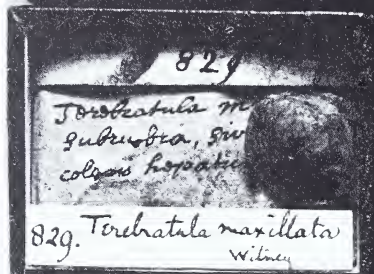 829
Terebratula m
subrubra, siv
coloris hepatic
829. Terebratula maxillata
Witney